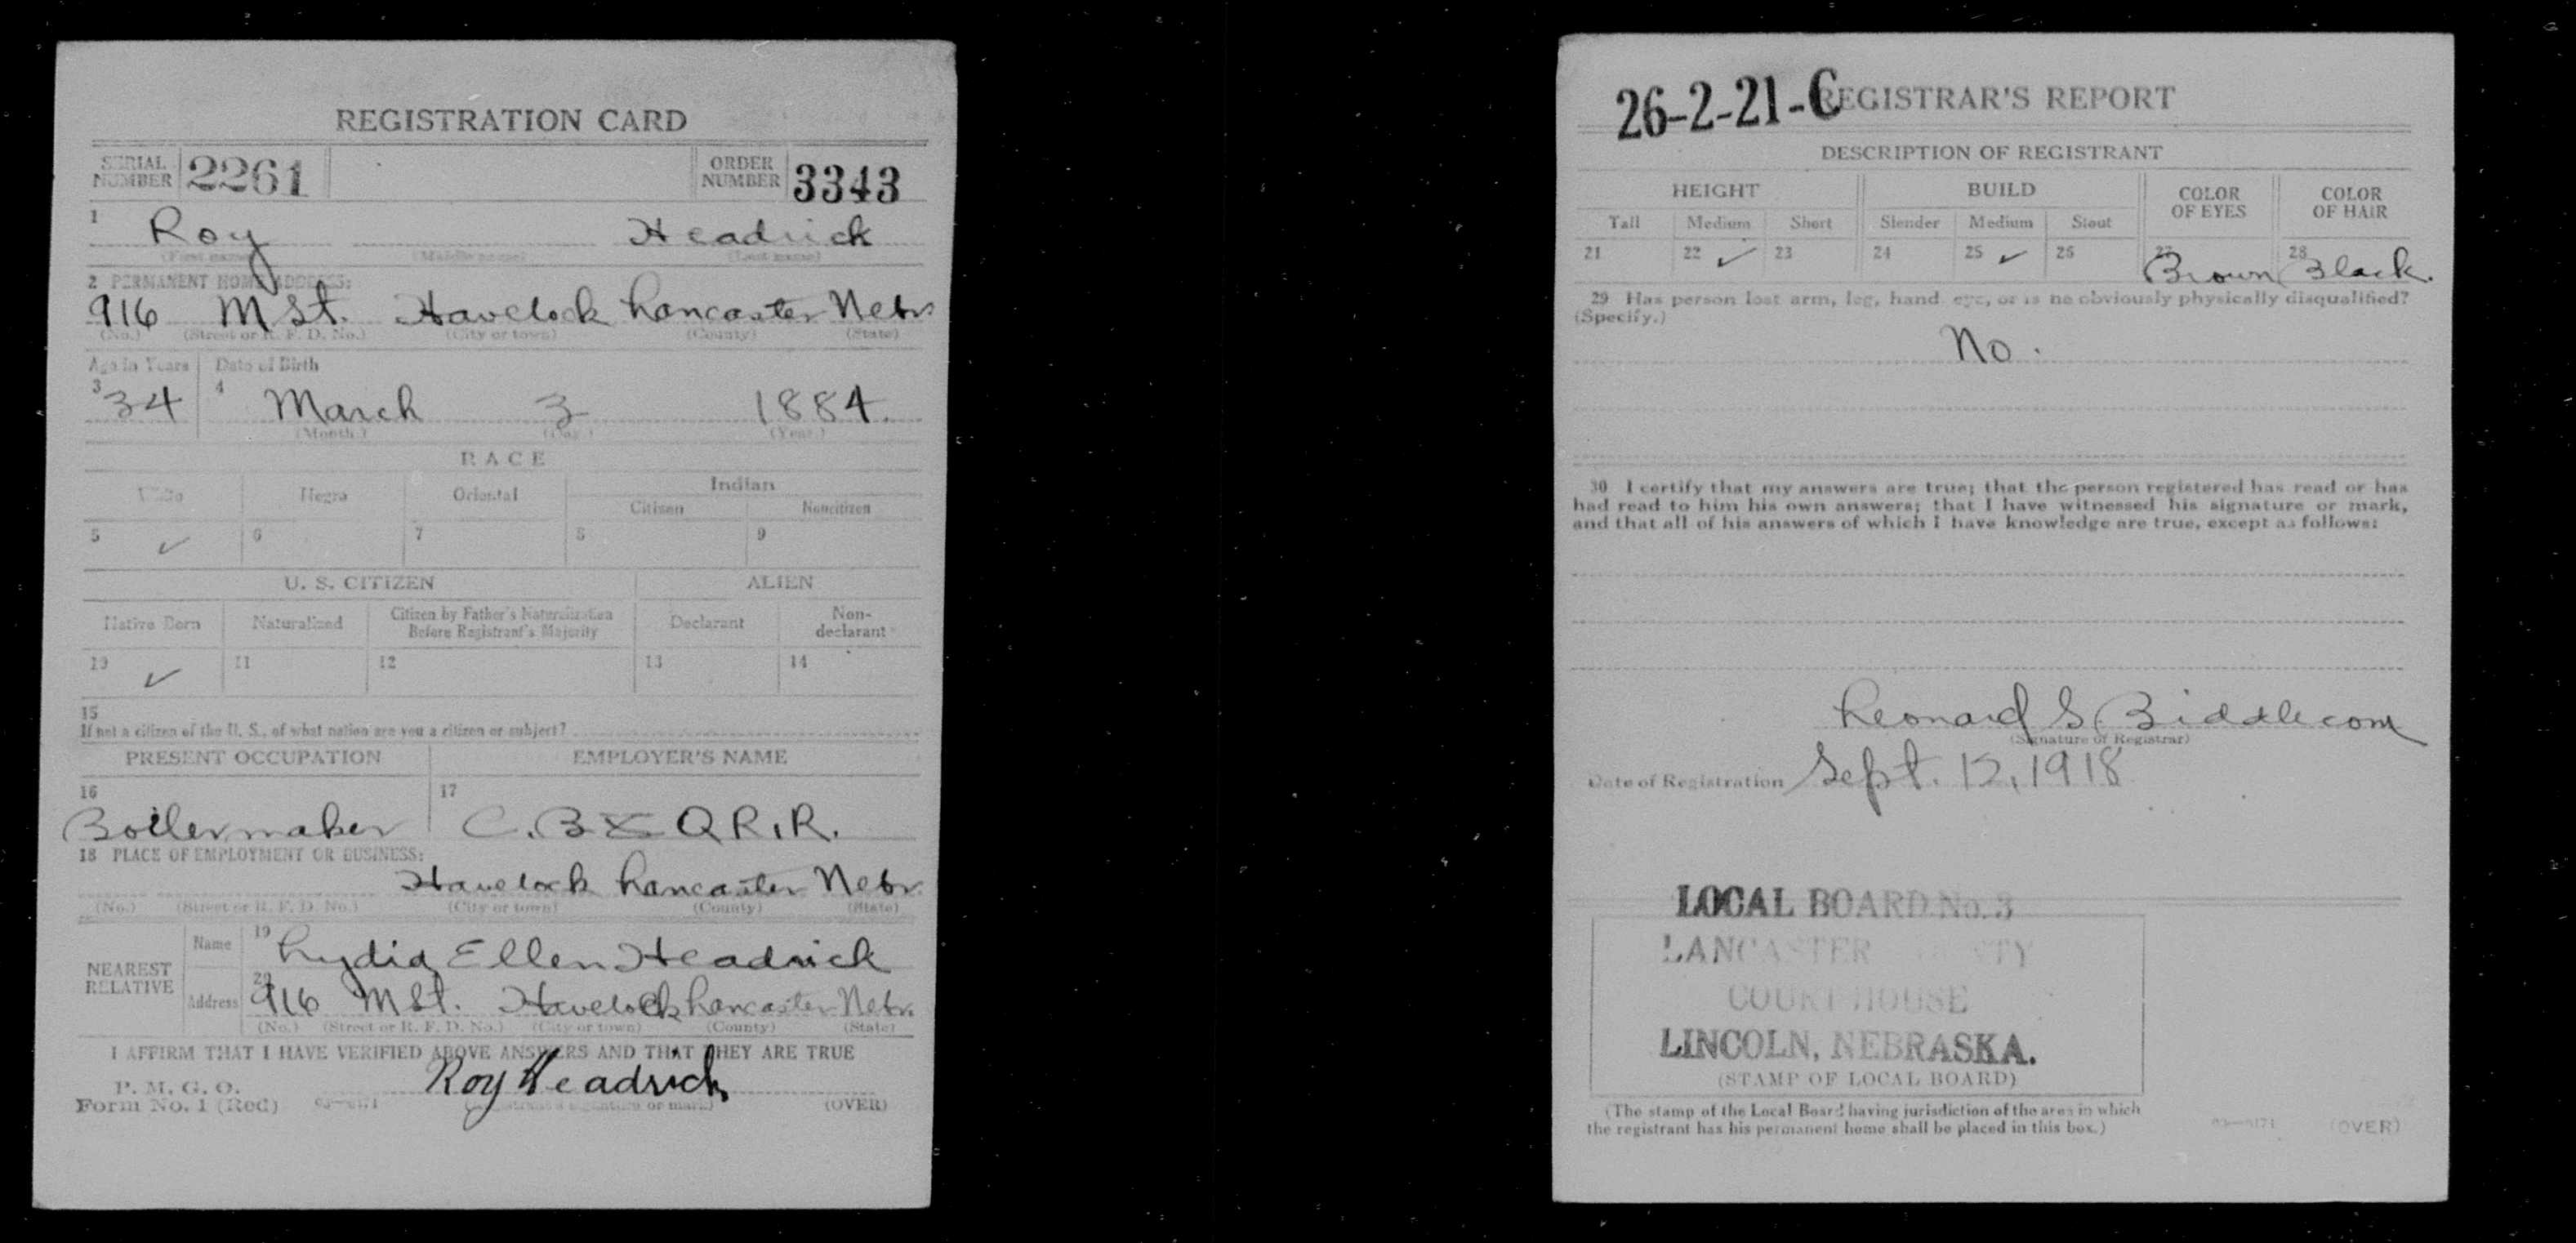 REGISTRATION CARD
SERIAL NUMBER 2261 ORDER NUMBER 3343
1 Roy Headrick
(First name) (Middle name) (Last name)
2 PERMANENT HOME ADDRESS:
916 M St. Havelock Lancaster Nebr
(No.) (Street or R. F. D. No.) (City or town) (County) (State)
Age in Years Date of Birth
3 34 4 March 3 1884.
(Month.) (Day.) (Year.)
RACE
White Negro Oriental Indian
Citizen Noncitizen
5 ✓ 6 7 8 9
U. S. CITIZEN ALIEN
Native Born Naturalized Citizen by Father's Naturalization Before Registrant's Majority Declarant Non-declarant
10 ✓ 11 12 13 14
15
If not a citizen of the U. S., of what nation are you a citizen or subject?
PRESENT OCCUPATION EMPLOYER'S NAME
16 17
Boilermaker C. B & Q R. R.
18 PLACE OF EMPLOYMENT OR BUSINESS:
Havelock Lancaster Nebr.
(No.) (Street or R. F. D. No.) (City or town) (County) (State)
NEAREST RELATIVE
Name 19 Lydia Ellen Headrick
Address 20 916 M St. Havelock Lancaster Nebr.
(No.) (Street or R. F. D. No.) (City or town) (County) (State)
I AFFIRM THAT I HAVE VERIFIED ABOVE ANSWERS AND THAT THEY ARE TRUE
P. M. G. O.
Form No. 1 (Red) Roy Headrick
(Registrant's signature or mark) (OVER)
26-2-21-C REGISTRAR'S REPORT
DESCRIPTION OF REGISTRANT
HEIGHT BUILD COLOR OF EYES COLOR OF HAIR
Tall Medium Short Slender Medium Stout
21 22 ✓ 23 24 25 ✓ 26 27 Brown 28 Black.
29 Has person lost arm, leg, hand, eye, or is he obviously physically disqualified?
(Specify.)
No.
30 I certify that my answers are true; that the person registered has read or has
had read to him his own answers; that I have witnessed his signature or mark,
and that all of his answers of which I have knowledge are true, except as follows:
Leonard S. Biddlecom
(Signature of Registrar)
Date of Registration Sept. 12, 1918
LOCAL BOARD No. 3
LANCASTER COUNTY
COURT HOUSE
LINCOLN, NEBRASKA.
(STAMP OF LOCAL BOARD)
(The stamp of the Local Board having jurisdiction of the area in which
the registrant has his permanent home shall be placed in this box.)
(OVER)